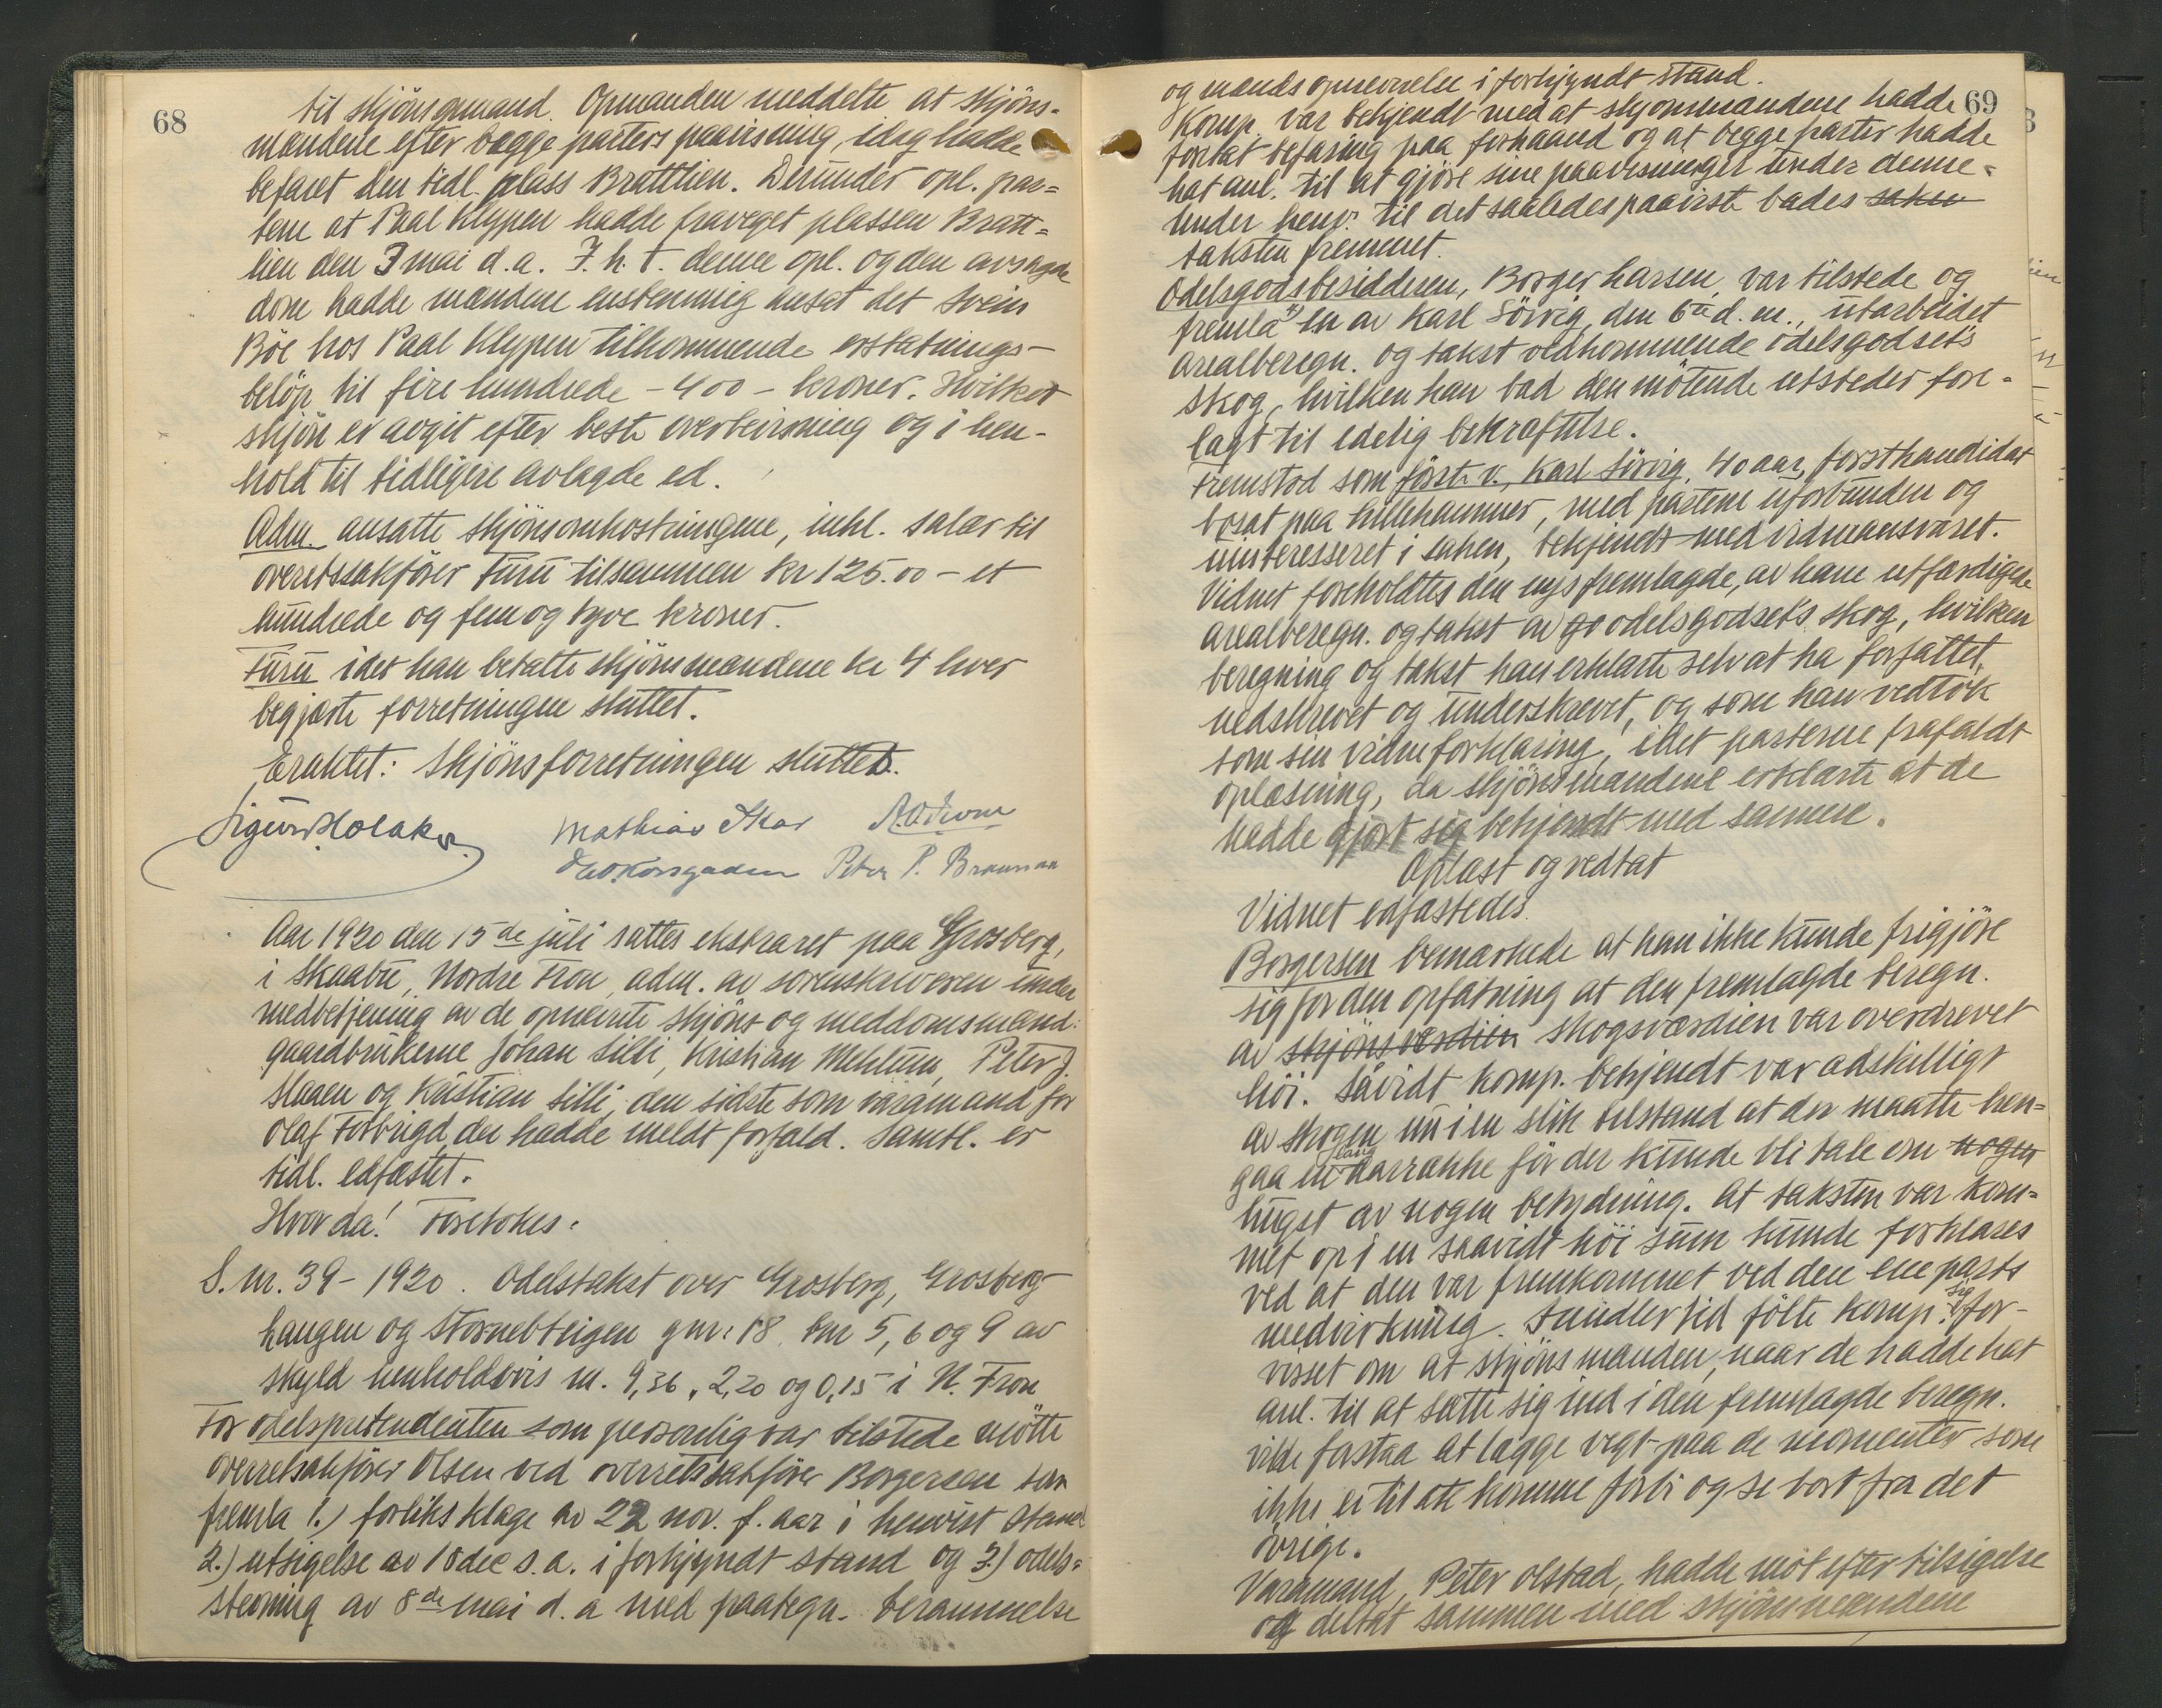 68
til skjönsopmand. Opmanden meddelte at skjöns-
mændene efter begge parters paavisning, idag hadde
befaret den tidl. plass Brattlien. Derunder opl. par-
tene at Paal Klypen hadde fraveget plassen Bratt-
lien den 3 mai d.a. I. h. t. denne opl. og den avsagde
dom hadde mændene enstemmig ansat det Svein
Böe hos Paal Klypen tilkommende erstatnings-
belöp til fire hundrede - 400 - kroner. Hvilket
skjön er avgit efter beste overbevisning og i hen-
hold til tidligere avlagde ed.
Adm. ansatte skjönsomkostningene, inkl. salær til
overretssakförer Furu tilsammen kr 125.00 - et
hundrede og fem og tyve kroner.
Furu idet han betalte skjönsmændene kr 4 hver
begjærte forretningen sluttet.
Eraktet: Skjönsforretningen sluttet.
Sigurd Holaker Mathias Skar
Peter P.
Aar 1920 den 15de juli sattes ekstraret paa Grosberg,
i Skaabu, Nordre Fron, adm. av sorenskriveren under
medbetjening av de opnævnte skjöns og meddomsmænd:
gaardbrukerne Johan Silli, Kristian Mehlum, Peter J.
Slaaen og Kristian Silli, den sidste som varamand for
Olaf Forbrigd, der hadde meldt forfald. Samtl. er
tidl. edfæstet.
Hvor da! Foretokes:
S. nr. 39 - 1920. Odelstakst over Grosberg, Grosberg-
haugen og Stornebteigen gnr. 18 bnr 5, 6 og 9 av
skyld henholdsvis m. 9,36, 2,20 og 0,15 i N. Fron
For odelspretendenten som personlig var tilstede mötte
overretssakförer Olsen ved overretssakförer Borgersen som
fremla 1.) forliksklage av 22 nov. f. aar i henvist stand
2.) utsigelse av 18 dec s.a. i forkyndt stand og 3.) odels-
stevning av 8de mai d.a med paategn. berammelse
69
og mændsopnevnelse i forkyndt stand.
Komp. var bekjendt med at skjönsmændene hadde
foretat befaring paa forhaand og at begge parter hadde
hat anl. til at gjöre sine paavisninger under denne.
Under henv. til det saaledes paaviste bades saken
taksten fremmet.
Odelsgodsbesidderen, Borger Larsen, var tilstede og
fremla en av Karl Sörvig, den 6te d.m., utarbeidet
arealberegn. og takst vedkommende odelsgodsets
skog, hvilken han bad den mötende utsteder fore-
lagt til edelig bekræftelse.
Fremstod som förste v., Karl Sörvig, 40 aar, forstkandidat
bosat paa Lillehammer, med partene uforbunden og
uinteresseret i saken, bekjendt med vidneansvaret.
Vidnet foreholdtes den nys fremlagde, av ham utfærdigede
arealberegn. og takst av go odelsgodsets skog, hvilken
beregning og takst han erklærte selv at ha forfattet,
nedskrevet og underskrevet, og som han vedtok
som sin vidneforklaring, idet parterne frafaldt
oplæsning, da skjönsmændene erklærte at de
hadde gjort sig bekjendt med samme.
Oplæst og vedtat
Vidnet edfæstedes.
Borgersen bemærkede at han ikke kunde frigjöre
sig for den opfatning at den fremlagde beregn.
av skjönsværdien skogsværdien var overdrevet
höi. Såvidt komp. bekjendt var adskilligt
av skogen nu i en slik tilstand at der maatte hen-
gaa en lang aarrække för der kunde bli tale om nogen
hugst av nogen betydning. At taksten var kom-
met op i en saavidt höi sum kunde forklares
ved at den var fremkommet ved den ene parts
medvirkning. Imidlertid fölte komp. sig for-
visset om at skjönsmænden, naar de hadde hat
anl. til at sætte sig ind i den fremlagde beregn.
vilde forstaa at lægge vegt paa de momenter som
ikke er til at komme forbi og se bort fra det
övrige.
Varamand, Peter Olstad, hadde möt efter tilsigelse
og deltat sammen med skjönsmændene